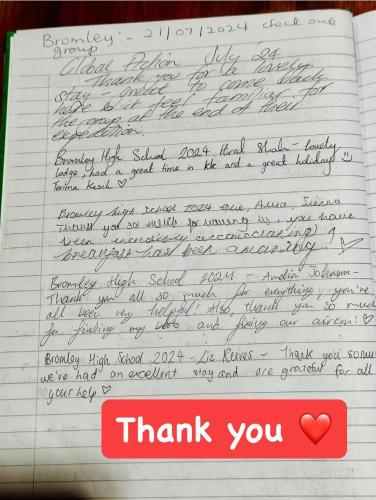 Bromley:- 21/07/2024 check out
group
Global Action July 24
Thank you for a lovely
stay - great to come back
here & it feel familiar for
the group at the end of their
expedition.
Bromley High School 2024 Hiral Shah - lovely
lodge, had a great time in KK and a great holiday
Terima Kasih ♡
Bromley high school 2024 Anna, Sienna
Thank you so much for having us, you have
been incredibly accommodating
breakfast has been amazing! ♡
Bromley High School 2024 - Amelia Johnson-
Thank you all so much for everything, you're
all been very helpful. Also, thank you so much
for finding my and fixing our aircon! ♡
Bromley High School 2024 - Liz Reeves - Thank you so much
we've had an excellent stay and are grateful for all
your help ♡
Thank you ❤️